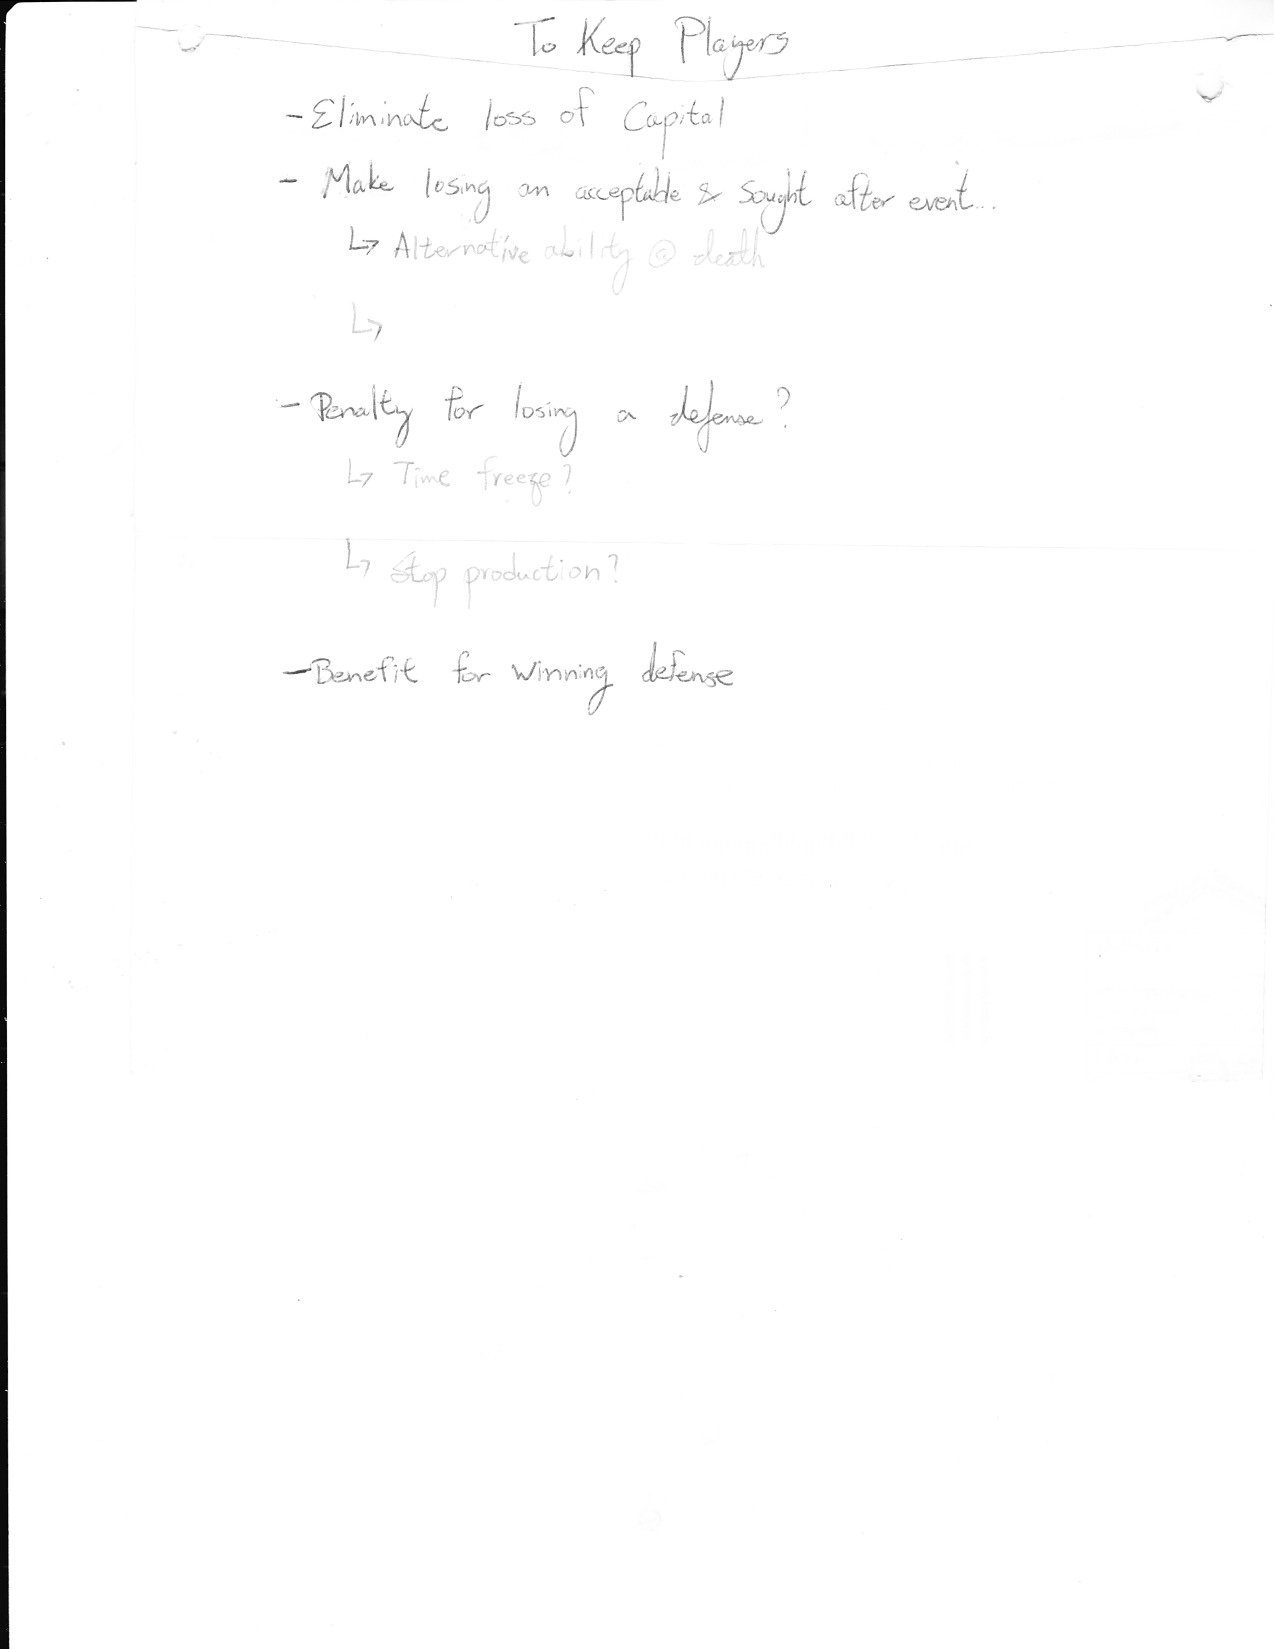 To Keep Players
- Eliminate loss of Capital
- Make losing an acceptable & sought after event...
↳ Alternative ability @ death
↳
- Penalty for losing a defense?
↳ Time freeze?
↳ Stop production?
- Benefit for winning defense